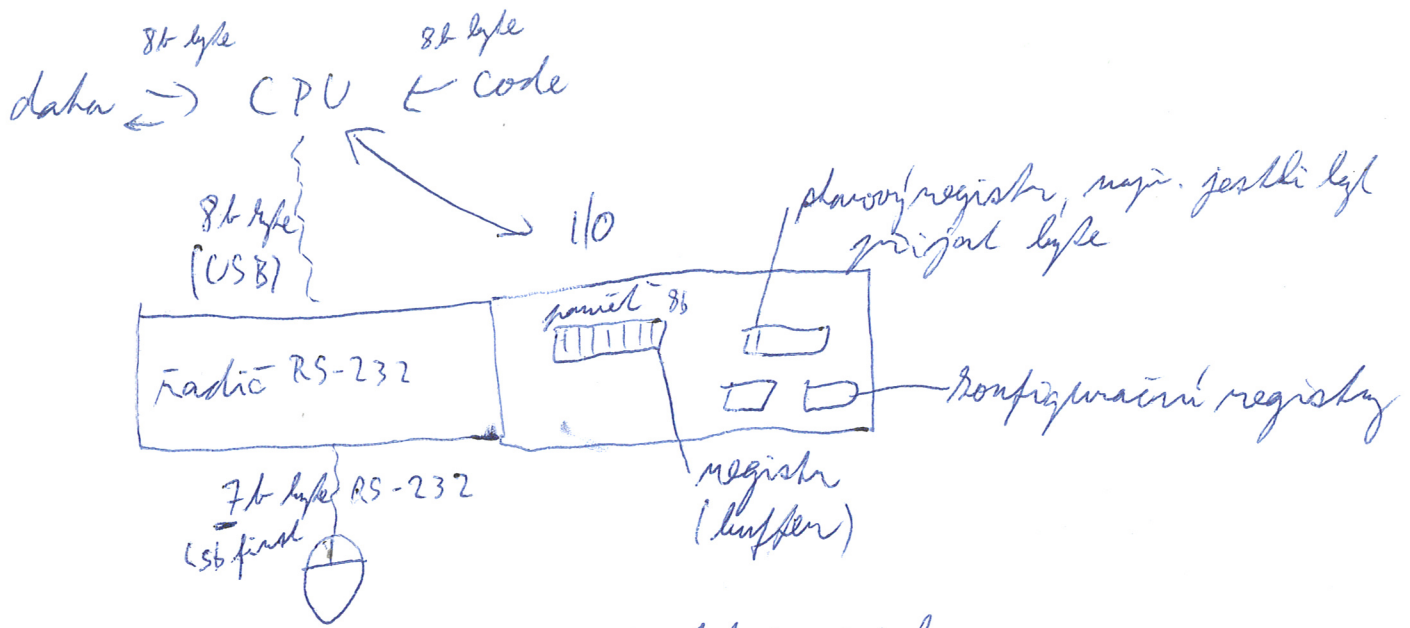 8b byte 8b byte
data CPU code
8b byte
(USB)
I/O
stavový registr, např. jestli byl
přijat byte
paměť 8b
řadič RS-232
konfigurační registry
registr
(buffer)
7b byte RS-232
lsb first